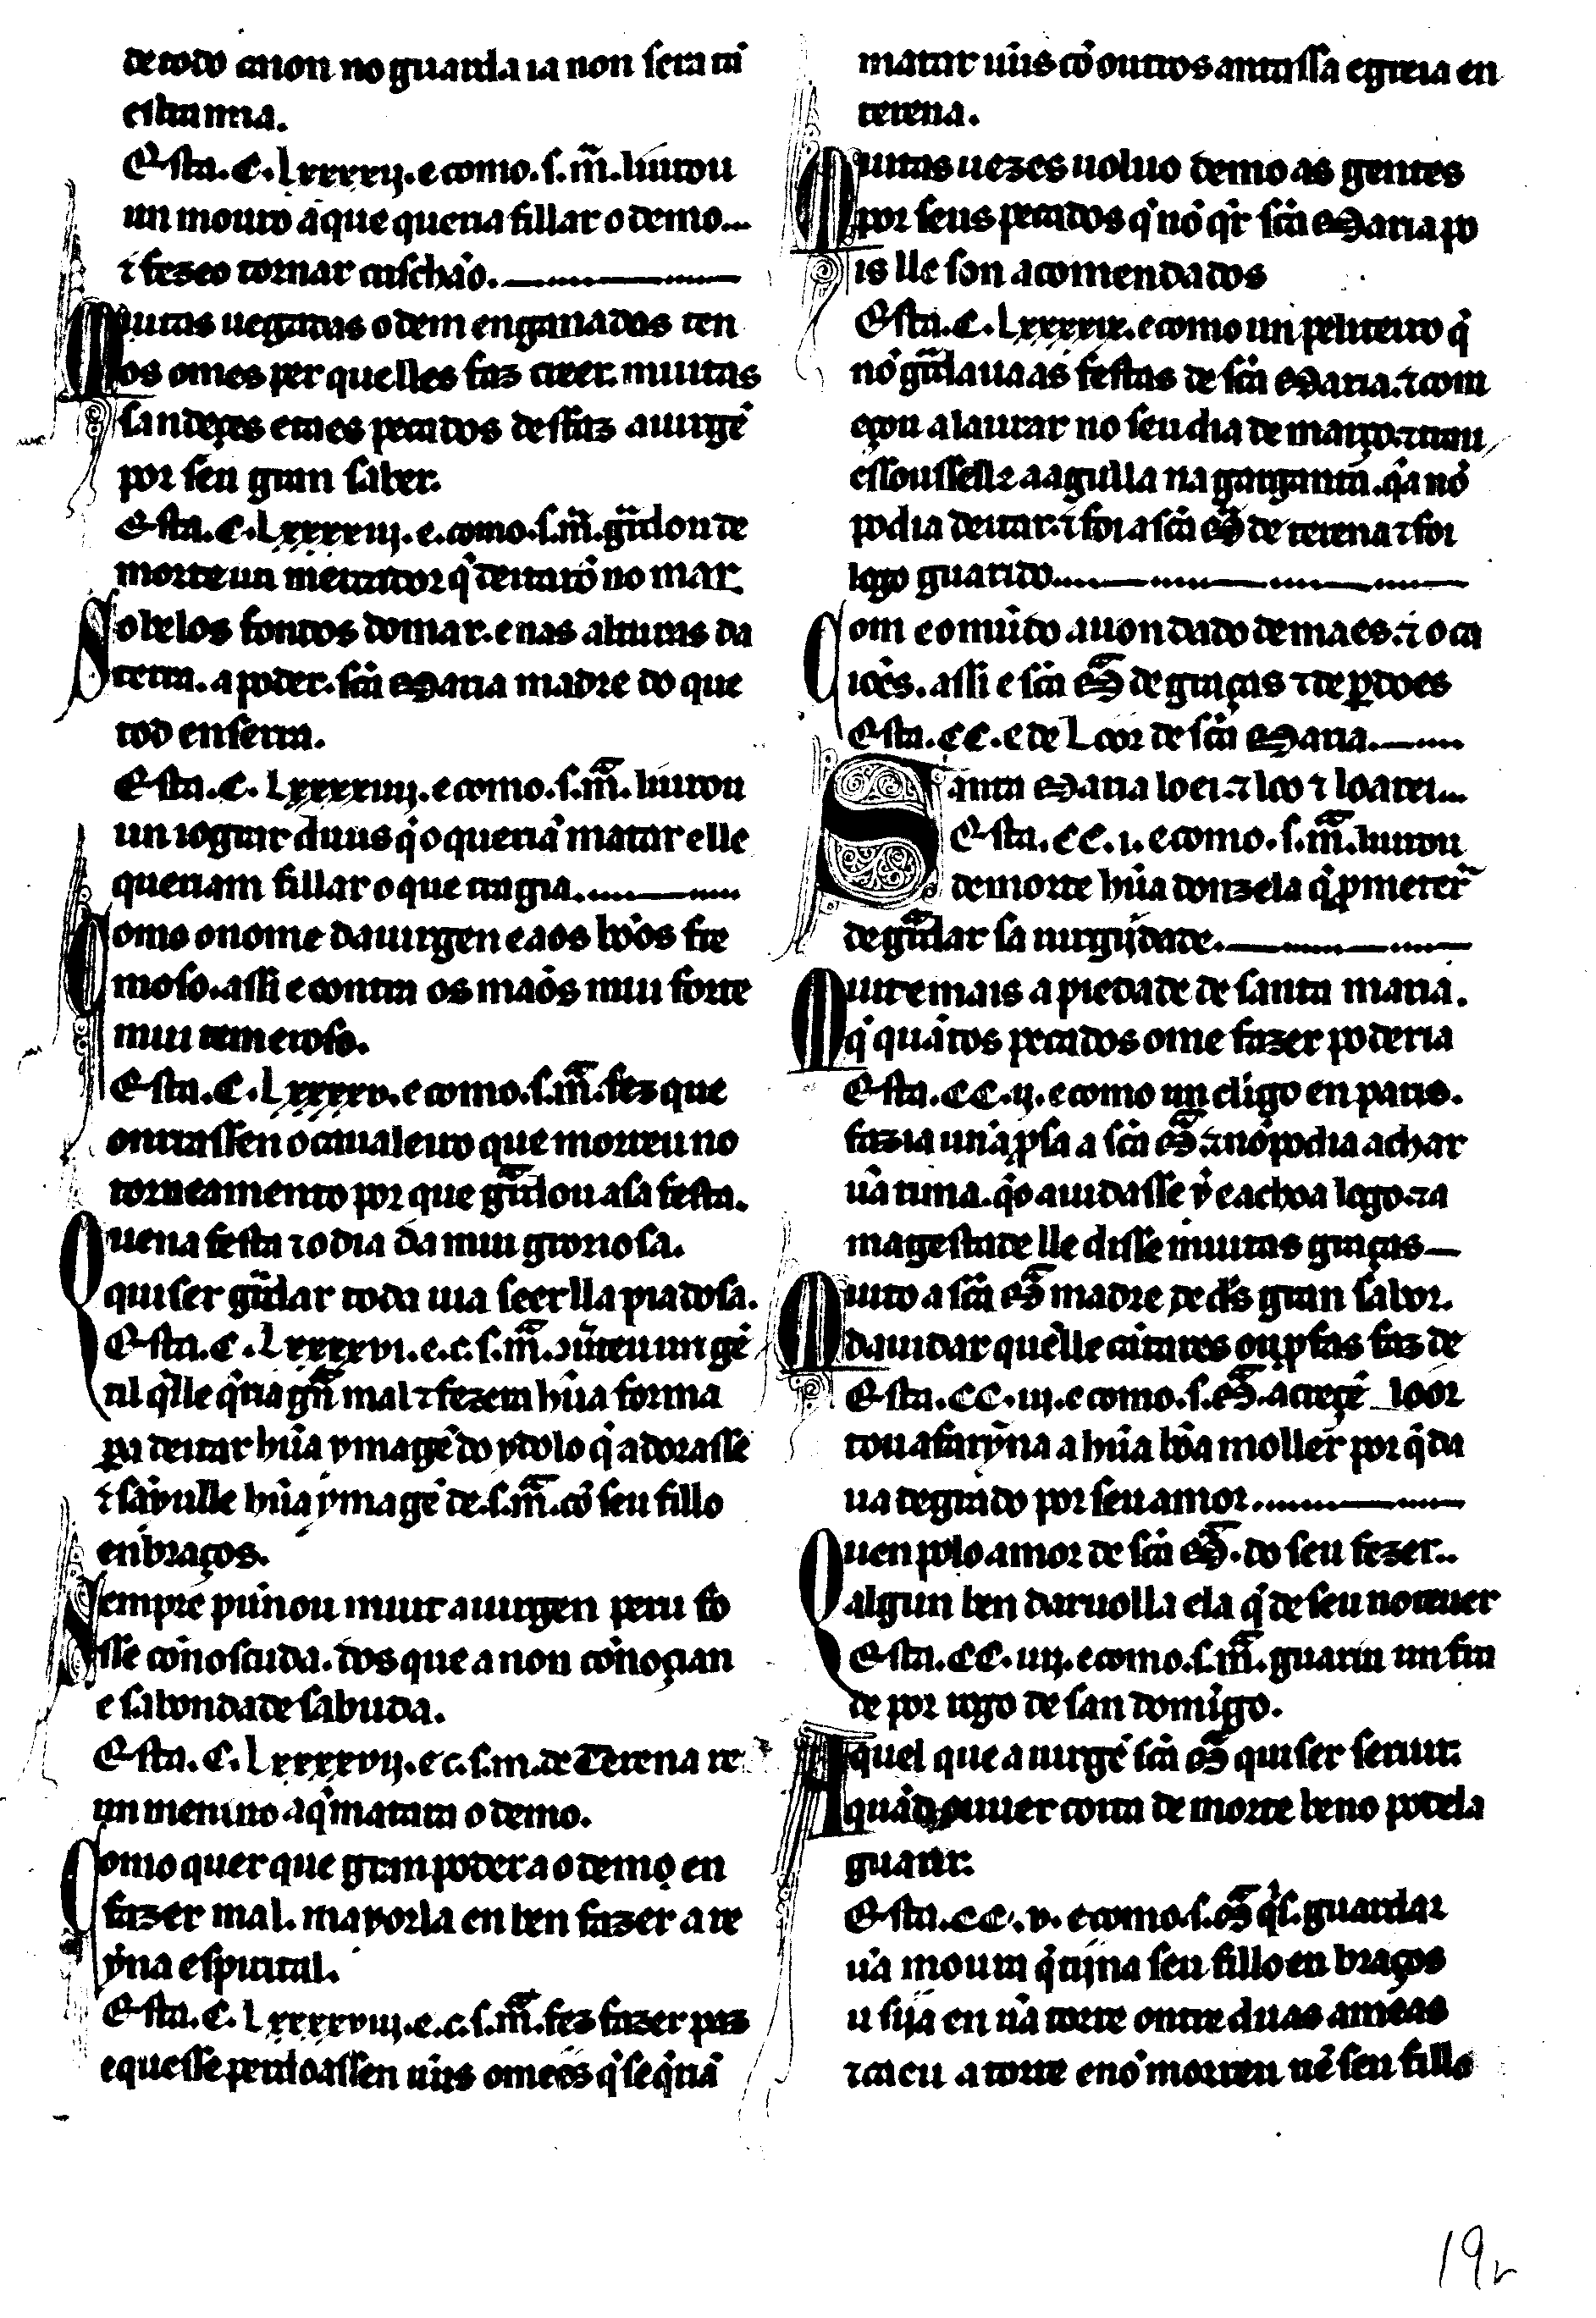 de todo e non no guarda ia non sera tã
estrannа.
Esta .C.Lxxxxij. e como .s.m̃. liurou
un mouro aque queria fillar o demo...
⁊ fezeo tornar crischão.
Muitas uegadas o dem enganados ten
os omes per quelles faz creer. muitas
sandeçes e taes pecados desfaz a uirgẽ
por seu gran saber.
Esta .C.Lxxxxiij. e. como .s.m̃. gũdou de
morte un mercador q̇ deitarõ no mar.
Sobelos fondos do mar. e nas alturas da
terra. a poder. sc̃a Maria madre do que
tod enserra.
Esta .C.Lxxxxiiij. e como .s.m̃. liurou
un iograr dũus q̇ o queriã matar e lle
queriam fillar o que tragia.
Como o nome da uirgen e aos bõos fre
moso. assi e contra os maos mui forte
mui temeroso.
Esta .C.Lxxxxv. e como .s.m̃. fez que
onrrassen o caualeiro que morreu no
torneamento por que gũdou a sa festa.
Quena festa ⁊ o dia da mui groriosa.
quiser gũdar toda uia seerlla piadosa.
Esta .C.Lxxxxvi. e.c.s.m̃. ꝯũteu un gẽ
til q̇lle q̇ria grã mal ⁊ fezera hũa forma
pera deitar hũa ymagẽ do ydolo q̇ adorasse
⁊ sayulle hũa ymagẽ de .s.m̃. cõ seu fillo
en braços.
Sempre punnou muit a uirgen peru fo
sse connoscuda. dos que a non connoçian
e sa bondade sabuda.
Esta .C.Lxxxxvij. e c.s.m. de Terena re
un menino a q̇ matara o demo.
Como quer que gram poder a o demo en
fazer mal. mayorla en ben fazer a re
ỹna espirital.
Esta .C.Lxxxxviij. e.c.s.m̃. fez fazer paz
e quesse perdoassen ũus omẽes q̇ se q̇riã
matar ũus cõ outros ant a ssa egreia en
terena.
Muitas uezes uoluo demo as gentes
por seus pecados q̇ nõ q̇r sc̃a Maria po
is lle son acomendados
Esta .C.Lxxxxix. e como un peliteiro q̇
nõ gũdaua as festas de sc̃a Maria. ⁊ com
eçou a laurar no seu dia de março. ⁊ trau
essousselle a agulla na garganta. q̇ a nõ
podia deitar. ⁊ foi a sc̃a M̃ de terena ⁊ foi
logo guarido.
Com e o mũdo auondado de maes. ⁊ o ca
iões. assi e sc̃a M̃ de graças ⁊ de ꝑdoes
Esta .CC. e de Loor de sc̃a Maria.
Santa Maria loei. ⁊ loo ⁊ loarei...
Esta .CC.i. e como .s.m̃. liurou
de morte hũa donzela q̇ ꝓmeterᷓ
de gũdar sa uirgijdade.
Muit e mais a piedade de santa maria.
q̇ quãtos pecados ome fazer poderia
Esta .CC.ij. e como un cl̃igo en paris.
fazia unã ꝓsa a sc̃a M̃. ⁊ nõ podia achar
ũa rima. q̇ o auidasse ỹ e achoa logo. ⁊ a
magestade lle disse muitas graças
Muito a sc̃a M̃ madre de dẽs gran sabor.
d auidar quẽ lle cãtares ou ꝓsas faz de
Esta .CC.iij. e como .s.M̃. acreçẽ loor
tou a farỹna a hũa bõa moller por q̇ da
ua de grado por seu amor.
Quen polo amor de sc̃a M̃. do seu fezer..
algun ben daruolla ela q̇ de seu no teuer
Esta .CC.iiij. e como .s.m̃. guariu un fra
de por rogo de san domĩgo.
Aquel que a uirgẽ sc̃a M̃ quiser seruir.
quãdo ouuer coita de morte beno pode la
guarir.
Esta .CC.v. e como .s.M̃ q̇s. guardar
ũa moura q̇ tijna seu fillo en braços
u sija en ũa torre ontre duas amẽas
⁊ caeu a torre e nõ morreu nẽ seu fillo
19r